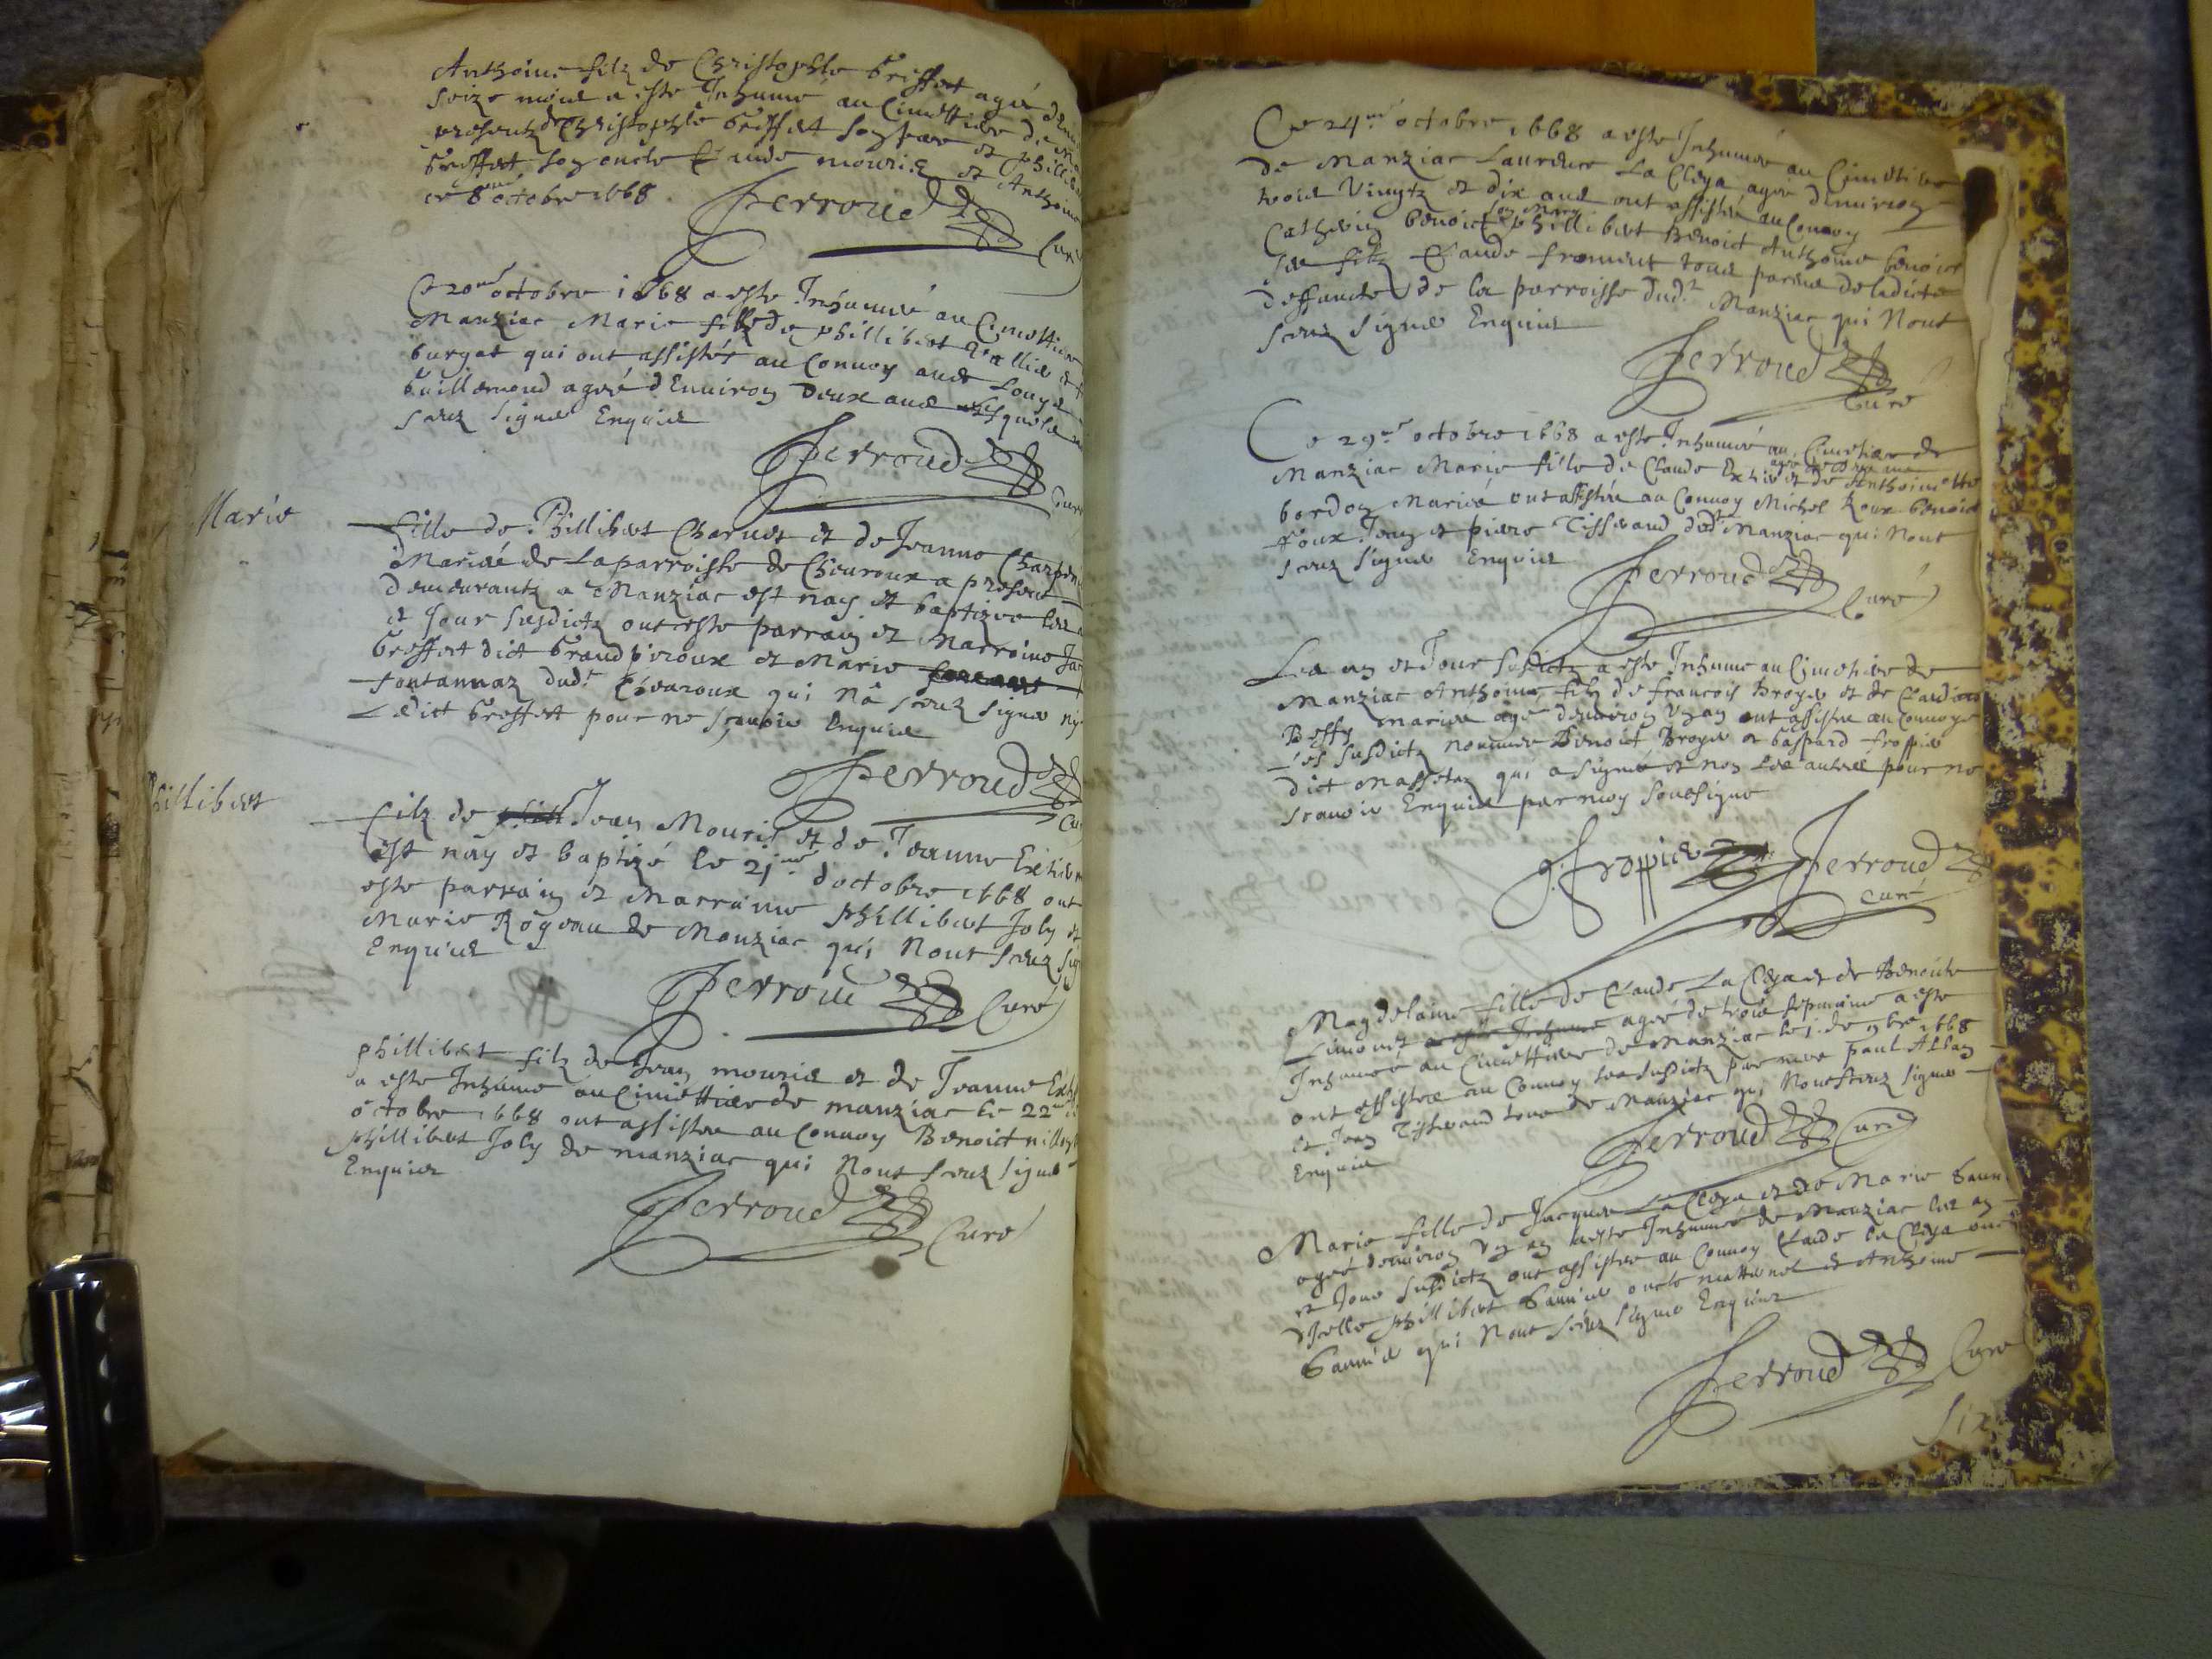 Anthoine filz de Christophle Greffet agé d'envi
seize mois a este Inhumé au Cimettiere de Ma
presentz de Christophle Greffet son pere et phillib
Greffet son oncle Claude mouris et Anthoine
ce 8me octobre 1668
Perroud Curé
Ce 20me octobre 1668 a este Inhumée au Cimettiere
Manziac Marie fille de phillibert
burgat qui ont assistés au Convoy avec Louys
Guillemaud agée d'Environ deux ans lesquels
sceuz signer Enquis
Perroud Curé
Marie
fille de Phillibert Charvet et de Jeanne Charpen
Mariés de La parroisse de Chevroux a present
demeurantz a Manziac est nay et baptizee les an
et Jour susdictz ont este parrain et Marrine Ja
Greffet dict Grand peroux et Marie
fontannaz dudt Chevaroux qui Na sceuz signer ny
Ledict Greffet pour ne sçavoir Enquis
Perroud Cu
Phillibert
filz de Jean Mouris et de Jeanne
est nay et baptizé le 21me d'octobre 1668 ont
este parrain et Marrinne phillibert Joly et
Marie Rogeau de Manziac qui Nont sceuz sig
Enquis
Perroud Curé
phillibert filz de Jean mouris et de Jeanne
a este Inhumé au Cimettiere de manziac le 22me
octobre 1668 ont assistes au Convoy Benoict
phillibert Joly de manziac qui Nont sceuz signer
Enquis
Perroud Curé
Ce 24me octobre 1668 a este Inhumée au Cimetiere
de Manziac Laurence La Cleya agée d'environ
trois Vingtz et dix ans ont assisté au Convoy
Cathein benoict son Mary phillibert Benoict Anthoine benoict
ses filz Claude froment tous parens de ladicte
deffuncte de la parroisse dudt Manziac qui Nont
sceuz signer Enquis
Perroud Curé
Ce 29me octobre 1668 a este Inhumée au Cimetiere de
Manziac Marie fille de Claude et de Anthoinette
bordon Mariés ont assistés au Convoy Michel Roux benoict
Roux Jean et piere Tisserand dudt Manziac qui Nont
sceuz signer Enquis
Perroud Curé
Les an et Jour susdictz a este Inhumé au Cimetiere de
Manziac Anthoine filz de francois Broyer et de Claudine
Beffy maries agé d'environ un an ont assistes au Convoye
Les susdictz nommes Benoict Broyer et Gaspard froppier
dict Massetaz qui a signé et non Les autres pour ne
scavoir Enquis par moy soussigné
G. froppier Perroud Curé
Magdelaine fille de Claude La Cleya et de Benoite
Limonet agée de trois sepmaines a este
Inhumée au Cimettiere de Manziac le 1. de 9bre 1668
ont assistes au Convoy les susdictz pere mere paul Alban
et Jean Tisserand tous de Manziac qui Nont sceuz signer
Enquis
Perroud Curé
Marie fille de Jacques La Cleya et de Marie
agée d'environ un an a este Inhumée de Manziac les an
et Jour susdictz ont assistes au Convoy Claude la Cleya oncle
d'Icelle phillibert Gaunie oncle matternel et Anthoine
Gaunie qui Nont sceuz signer Enquis
Perroud Curé
Six